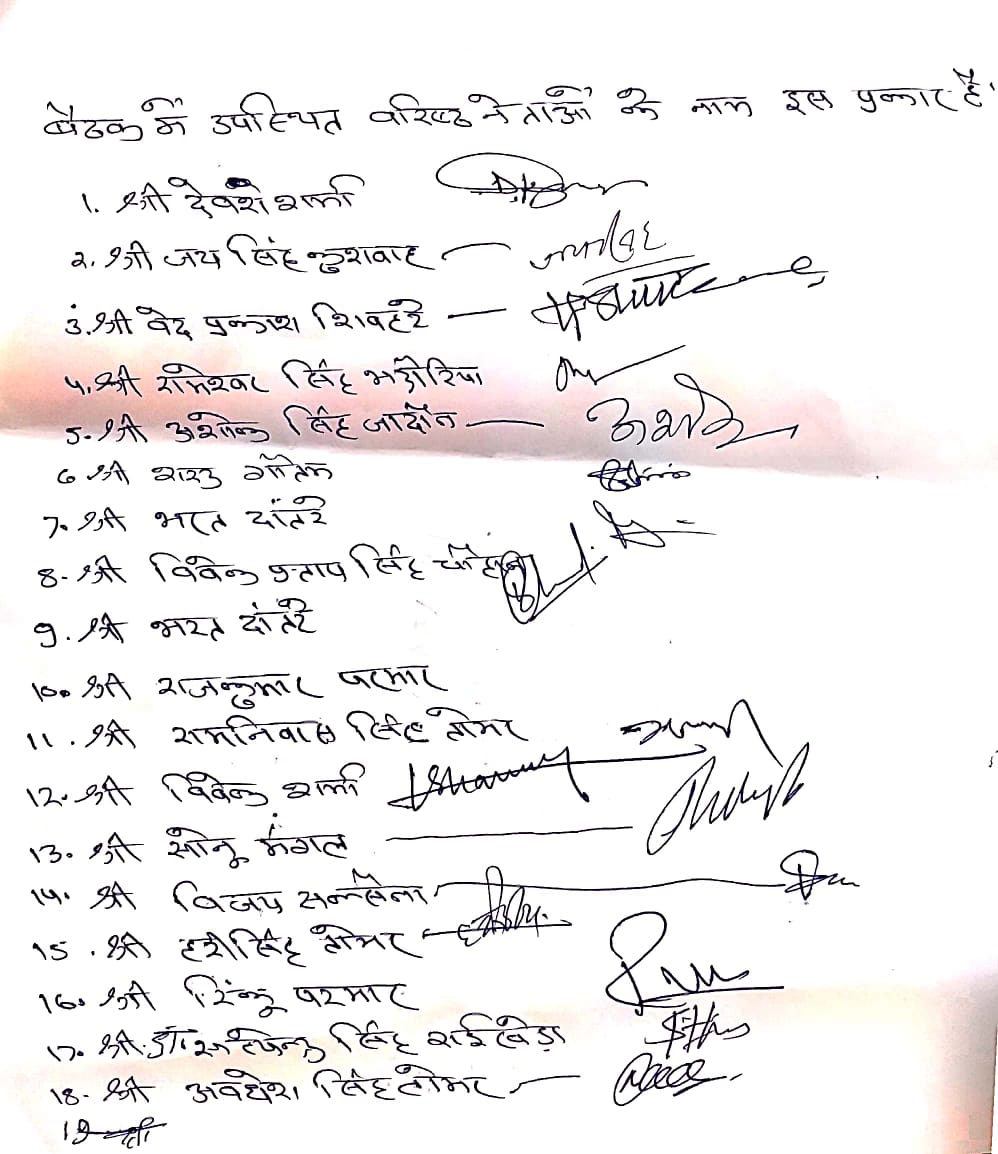 बैठक में उपस्थित वरिष्ठ नेताओं के नाम इस प्रकार है.
1. श्री देवेश शर्मा
2. श्री जय सिंह कुशवाह
3. श्री वेद प्रकाश शिवहरे
4. श्री रामेश्वर सिंह भदौरिया
5. श्री अशोक सिंह जादौन
6 श्री गौतम
7. श्री भरत दांतरे
8. श्री विवेक प्रताप सिंह चौहान
9. श्री भरत दांतरे
10. श्री राजकुमार परमार
11. श्री रामनिवास सिंह तोमर
12. श्री विवेक शर्मा Sharma
13. श्री सोनू मंगल
14. श्री विजय सक्सेना
15. श्री हरीसिंह तोमर
16. श्री रिंकू परमार
17. श्री डॉ. सिंह
18. श्री अवधेश सिंह तोमर
19 श्री